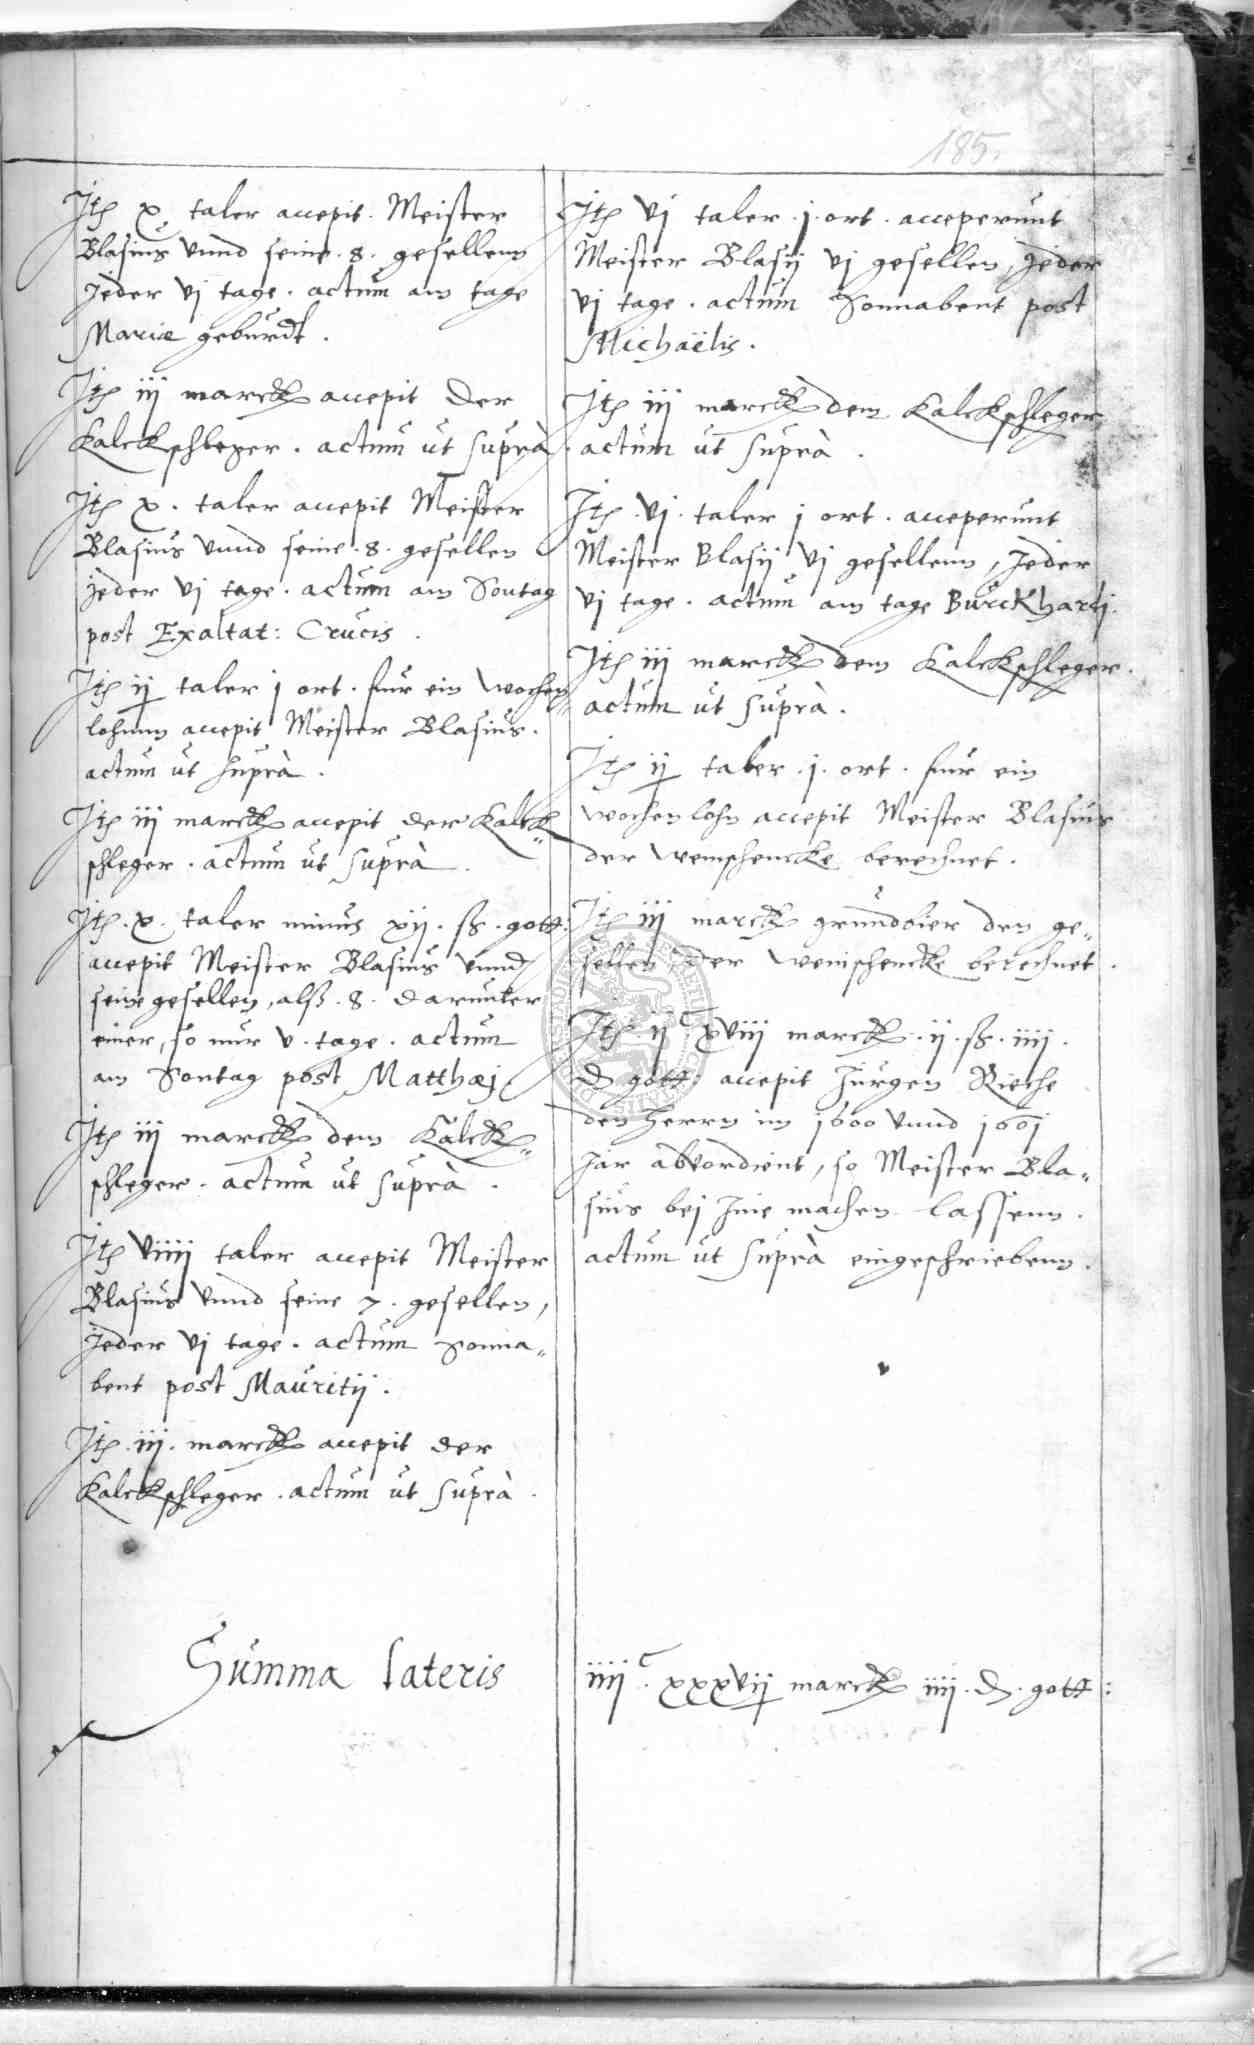 185.
Itẽ x taler accepit Meister
Blasius vnnd seine .8. gesellenn
Jeder vj tage . actum am tage
Mariæ geburdt .
Itẽ iij marck accepit der
Kalckschleger . actum ut suprà
Itẽ x . taler accepit Meister
Blasius vnnd seine .8. gesellen
jeder vj tage . actum am Sontag
post Exaltat: Crucis .
Itẽ ij taler j ort . fur ein wochen„
lohnn accepit Meister Blasius .
actum ut suprà .
Itẽ iij marck accepit der Kalck„
schleger . actum ut suprà .
Itẽ . x . taler minus xij . ß . gott:
accepit Meister Blasius vnnd
seine gesellen, alß .8. darunter
einer, so nur v . tage . actum
am Sontag post Matthæj .
Itẽ iij marck dem Kalck„
schleger . actum ut suprà .
Itẽ viiij taler accepit Meister
Blasius vnnd seine 7. gesellen,
Jeder vj tage . actum Sonna„
bent post Mauritij .
Itẽ . iij . marck accepit der
Kalckschleger . actum ut suprà .
Itẽ vj taler .j. ort . acceperunt
Meister Blasij vj gesellen, jeder
vj tage . actum Sonnabent post
Michaëlis .
Itẽ iij marck dem Kalckschleger
. actum ut suprà .
Itẽ . vj . taler j ort . acceperunt
Meister Blasij vj gesellenn, Jeder
vj tage . actum am tage Burckhardj .
Itẽ iij marck dem Kalckschleger .
actum ut suprà .
Itẽ ij taler .j. ort . fur ein
wochenlohn accepit Meister Blasius
der weinschencke berechnet .
Itẽ iij marck grundbier den ge„
sellen der weinschencke berechnet .
Itẽ . ij c xviij marck . ij . ß . iiij .
d gott: accepit Jurgen Rieche
den herrn im 1600 vnnd 1601
Jar abverdient, so Meister Bla„
sius bej Jme machen lassenn .
actum ut suprà eingeschriebenn .
Summa lateris
iiij c . xxxvij marck iiij . d . gott: